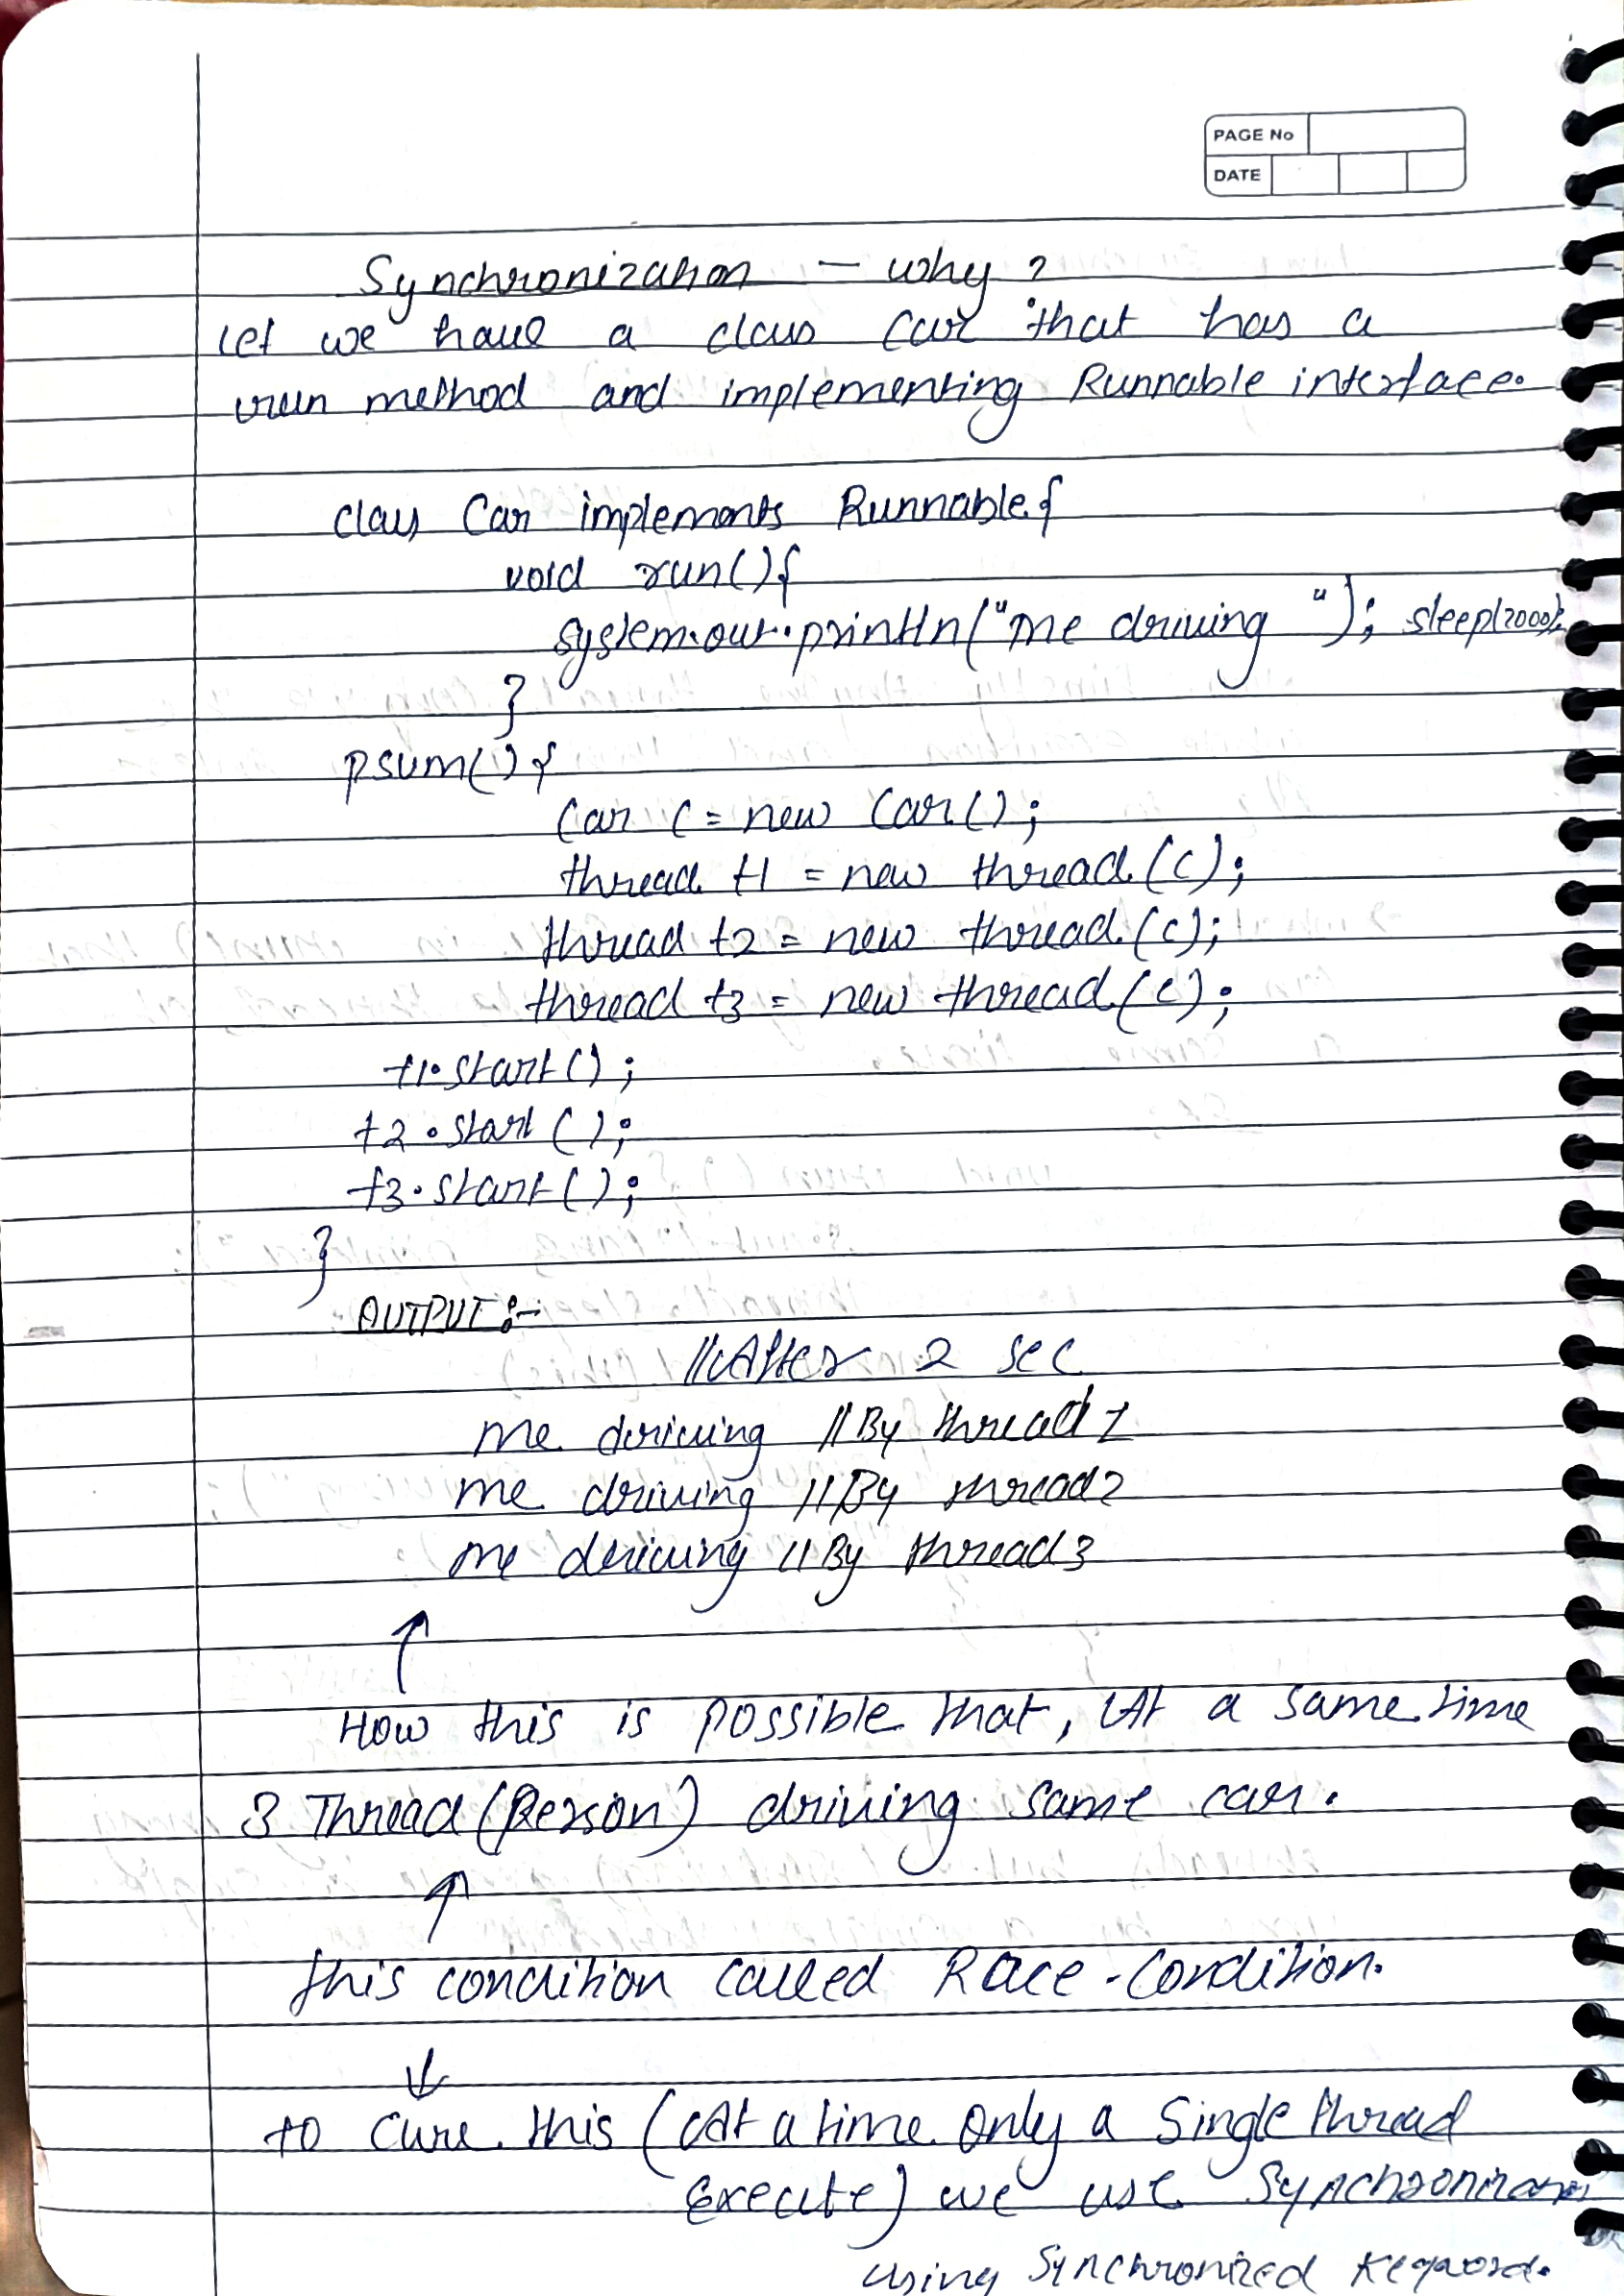 PAGE No
DATE
Synchronization — why ?
let we have a class Car that has a
run method and implementing Runnable interface.
class Car implements Runnable{
void run(){
system.out.println("me driving "); sleep(2000);
}
psvm(){
Car c = new Car();
thread t1 = new thread(c);
thread t2 = new thread(c);
thread t3 = new thread(c);
t1.start();
t2.start();
t3.start();
}
OUTPUT :-
//After 2 sec
me driving //By thread 1
me driving //By thread2
me driving //By thread3
↑
How this is possible that, At a same time
3 Thread (Person) driving same car.
↑
this condition called Race-Condition.
↓
to Cure this (At a time only a Single thread
Execute) we use Synchronization
using Synchronized Keyword.